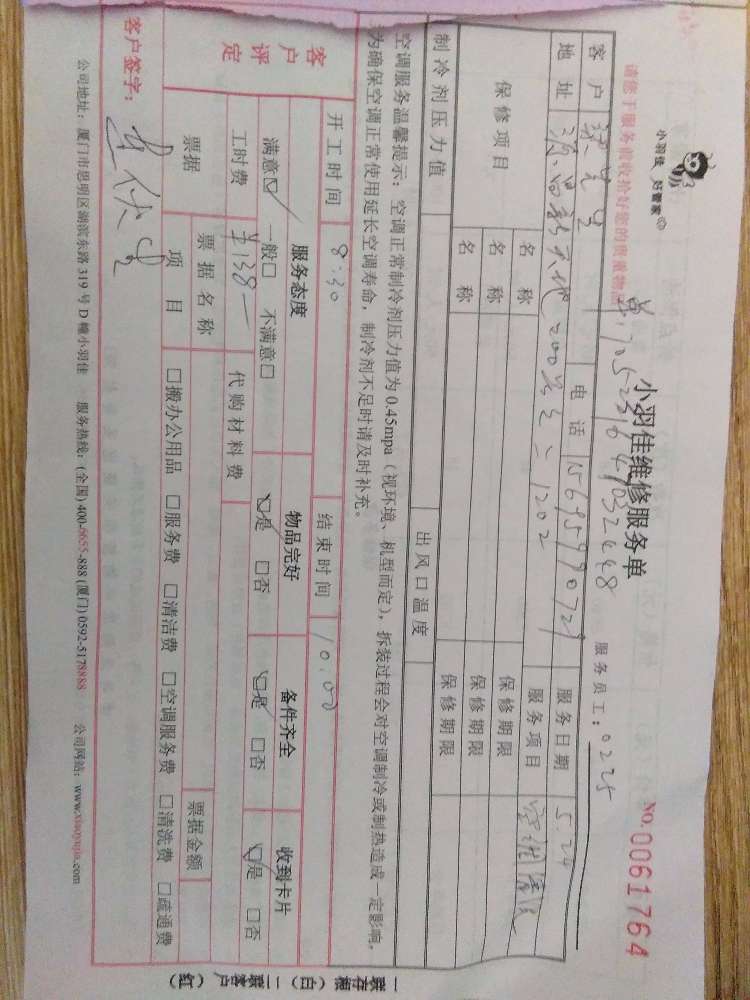 小羽佳 好管家
请您于服务前收拾好您的贵重物品
小羽佳维修服务单
服务员工：0225
NO.0061764
单:70523164032448
客户 电话 15695990721 服务日期 5.24
地址 200号之二1202 服务项目 空调清洗
保修项目 名称 保修期限
名称 保修期限
名称 保修期限
制冷剂压力值 出风口温度
空调服务温馨提示：空调正常制冷剂压力值为 0.45mpa（视环境、机型而定），拆装过程会对空调制冷或制热造成 定影响，
为确保空调正常使用延长空调寿命，制冷剂不足时请及时补充。
开工时间 8:30 结束时间 10:00
客户评定 服务态度 物品完好 备件齐全 收到卡片
满意☑ 一般□ 不满意□ ☑是 □否 ☑是 □否 ☑是 □否
工时费 ¥138— 代购材料费
票据 票据名称 票据金额
项目 □搬办公用品 □服务费 □清洁费 □空调服务费 □清洗费 □疏通费
客户签字：
公司地址：厦门市思明区湖滨东路 319 号 D 幢小羽佳 服务热线：(全国) 400-6655-888 (厦门) 0592-5178888 公司网站：www.xiaoyujia.com
一联存根（白）二联客户（红）